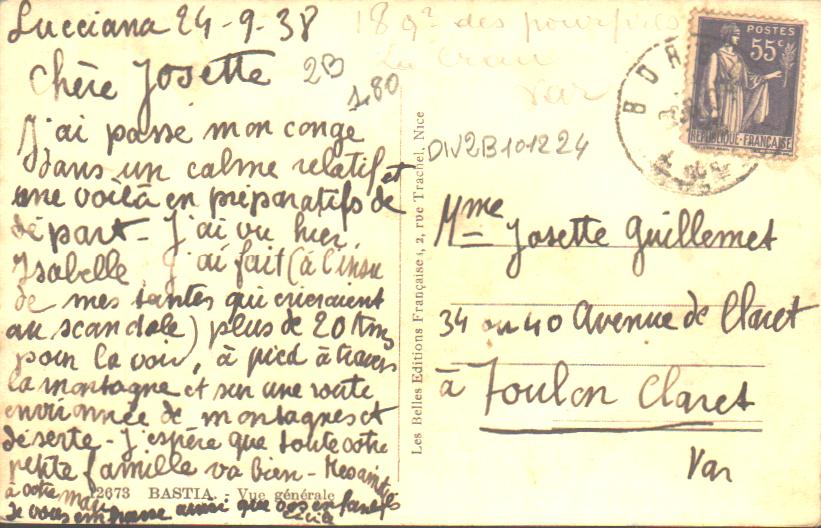 Lucciana 24-9-38
189² des pourpiers
La Crau
Var
Chère Josette
2B
1.80
J'ai passé mon congé
dans un calme relatif et
me voilà en préparatifs de
départ - J'ai vu hier,
Ysabelle, J'ai fait (à l'insu
de mes tantes qui crieraient
au scandale) plus de 20 Kms
pour la voir, à pied à travers
la montagne et sur une route
environnée de montagnes et
déserte - J'espère que toute votre
petite famille va bien -
à votre mari
12673 BASTIA. - Vue générale
Je vous embrasse ainsi que vos enfants
Les Belles Editions Françaises, 2, rue Trachel, Nice
DIV2B101224
POSTES
55c
REPUBLIQUE-FRANÇAISE
BOR
Mme Josette Guillemet
34 ou 40 Avenue de Claret
à Toulon Claret
Var